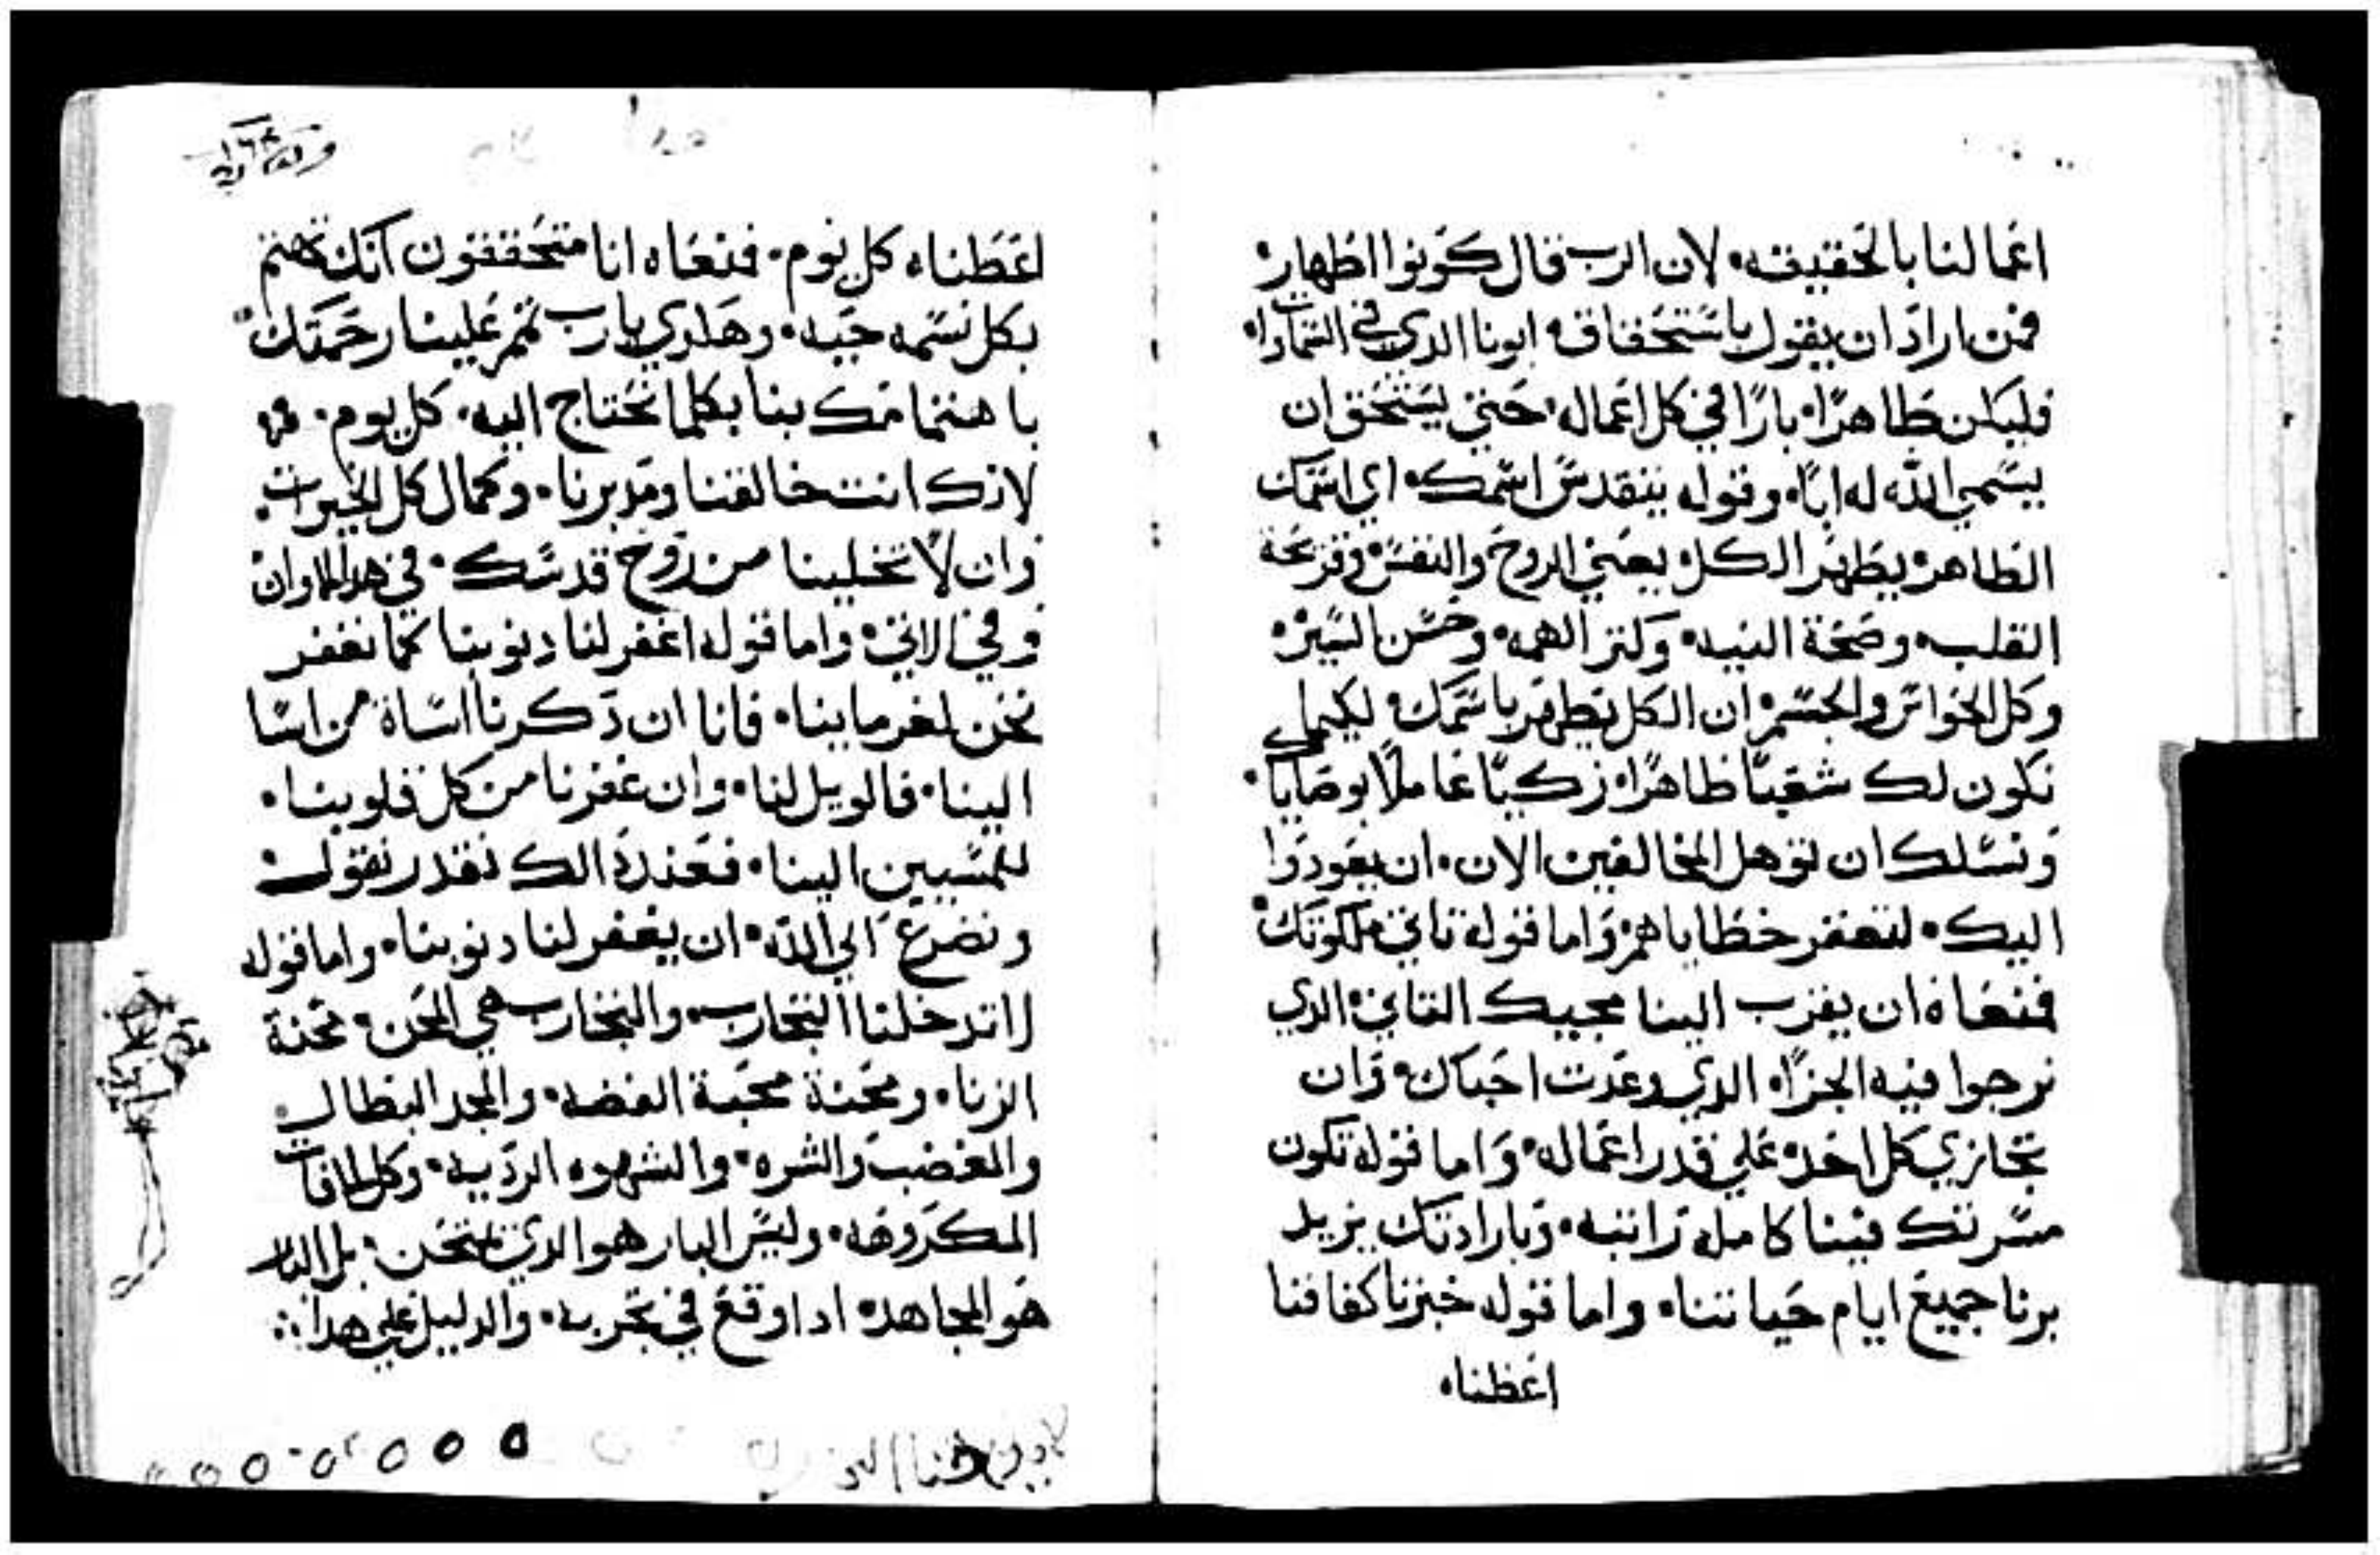 اعمالنا بالحقيقه• لان الرب قال كونوا اطهار•
فمن اراد ان يقول باستحقاق• ابونا الدي في السماوات•
فليكن طاهرًا• بارًا في كل اعماله• حتي يستحق ان
يسمي الله له ابًا• وقوله يتقدس اسمك• اي اسمك
الطاهر• يطهر الكل• يعني الروح والنفس•
القلب• وصحة النيه• الهمه• وحسن السيره•
وكل الحواس والجسم• ان الكل يطهر باسمك• لكيما
نكون لك شعبًا طاهرًا• زكيًا عاملًا بوصاياك•
ونسلك ان توهل المخالفين الان• ان يعودوا
اليك• لتغفر خطاياهم• واما قوله تاتي ملكوتك•
فمعناه ان يقرب الينا مجيك التاني• الدي
نرجوا فيه الجزا• الدي وعدت احباك• وان
تجازي كل احد• علي قدر اعماله• واما قوله تكون
مسرتك فينا كامله راتبه• وبارادتك يزيد
برنا جميع ايام حياتنا• واما قوله خبزنا كفافنا
اعطنا•
اعطنا• كل يوم• فمعناه انا متحققون انك تهتم
بكل نسمه حيه• وهلدي يارب تمم علينا رحمتك•
باهتمامك بنا بكلما نحتاج اليه• كل يوم•
لانك انت خالقنا ومدبرنا• وكمال كل الخيرات•
وان لا تخلينا من روح قدسك• في هدا الاوان
وفي الاتي• واما قوله اغفر لنا دنوبنا كما نغفر
نحن لغرماينا• فانا ان دكرنا اساة من اسا
الينا• فالويل لنا• وان غفرنا من كل قلوبنا•
للمسيين الينا• فعند دالك نقدر نقول•
ونضرع الي الله• ان يغفر لنا دنوبنا• واما قوله
لا تدخلنا التجارب• والتجارب هي المحن• محنة
الزنا• ومحنة محبة الفضه• والمجد البطال•
والغضب والشره• والشهوه الرديه• وكل الافات
المكروهه• وليس البار هو الدي يمتحن• بل البار
هو المجاهد• ادا وقع في تجربه• والدليل علي هدا∴